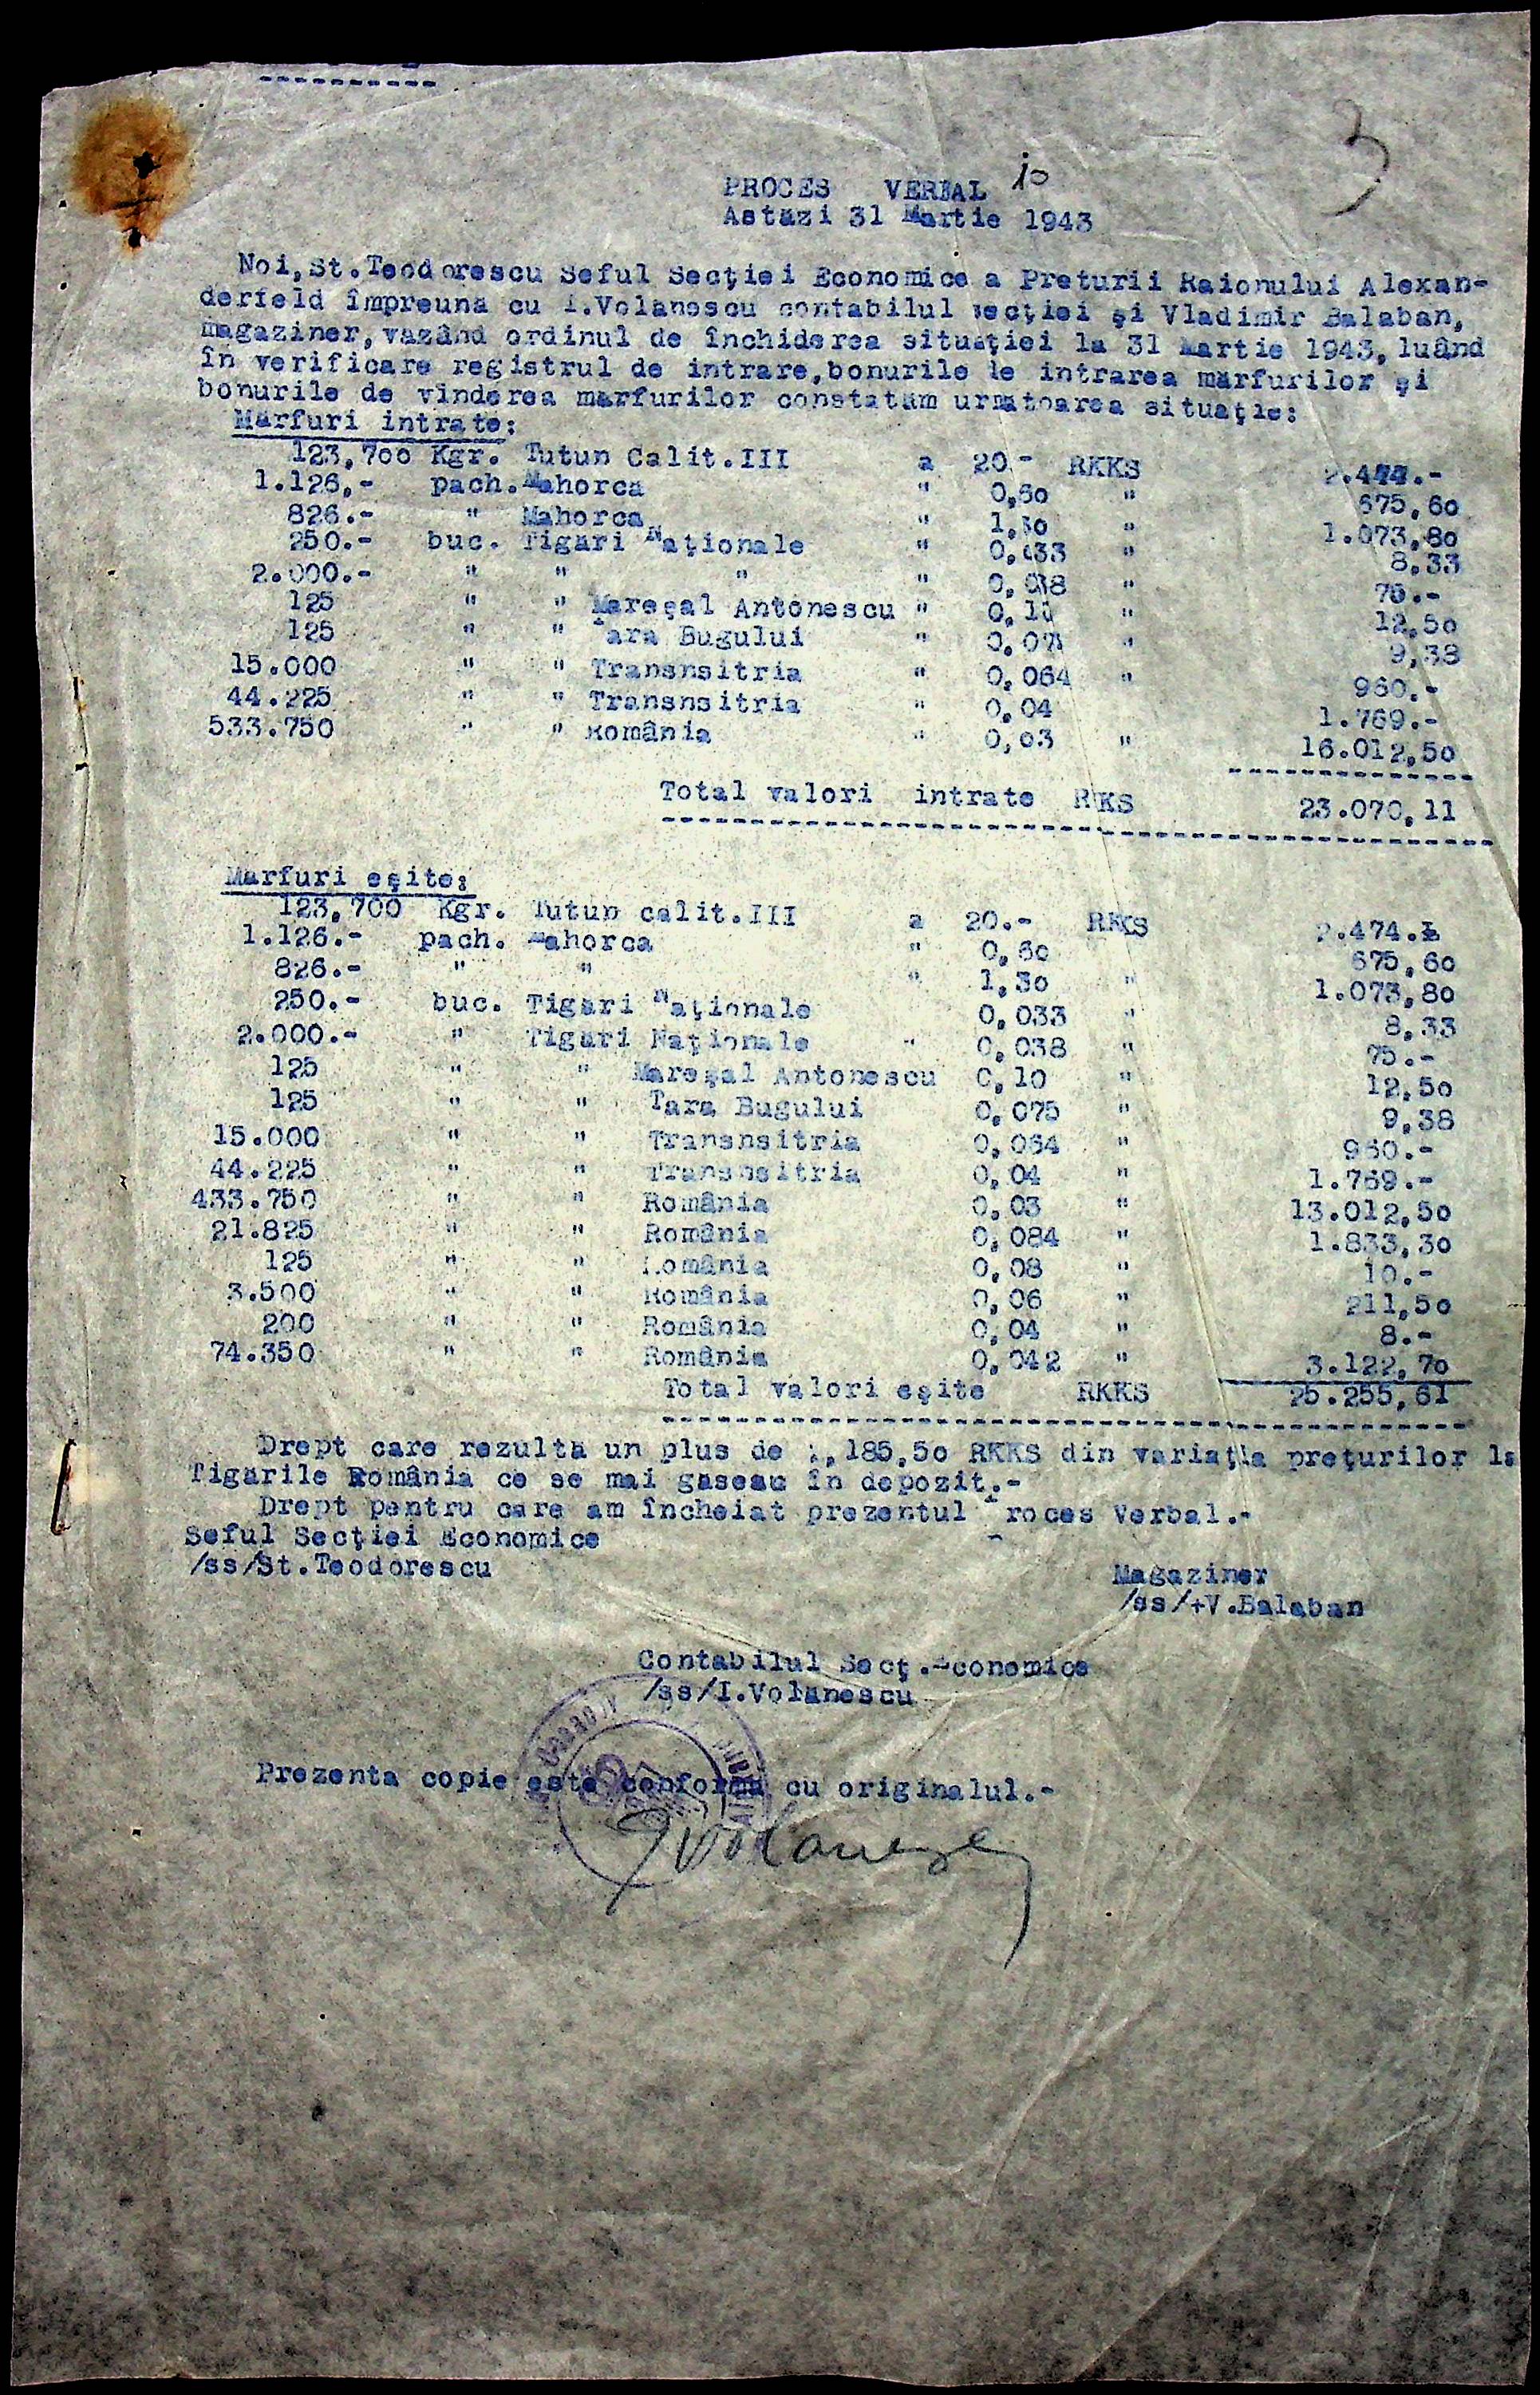 PROCES VERBAL 10
3
Astăzi 31 Martie 1943
Noi,St.Teodorescu Seful Secţiei Economice a Preturii Raionului Alexan-
derfeld împreună cu I.Volănescu contabilul secţiei şi Vladimir Balaban,
magaziner,văzând ordinul de închiderea situaţiei la 31 Martie 1943,luând
în verificare registrul de intrare,bonurile de intrarea mărfurilor şi
bonurile de vînderea mărfurilor constatăm următoarea situaţie:
Mărfuri intrate:
123,700 Kgr. Tutun Calit.III a 20.- RKKS
1.126,- pach. Mahorcă " 0,60 " 675,60
826.- " Mahorca " 1,30 " 1.073,80
250.- buc. Tigări Naţionale " 0,033 " 8,33
2.000.- " " " " 0,038 " 75.-
125 " " Mareşal Antonescu " 0,10 " 12,50
125 " " Tara Bugului " " 9,38
15.000 " " Transnsitria " 0,064 " 960.-
44.225 " " Transnsitria " 0,04 1.769.-
533.750 " " România " 0,03 " 16.012,50
Total valori intrate RKKS 23.070,11
Mărfuri eşite:
123,700 Kgr. Tutun calit.III a 20.- RKKS 2.474.-
1.126.- pach. Mahorca " 0,60 675,60
826.- " " " 1,30 " 1.073,80
250.- buc. Tigări Naţionale 0,033 " 8,33
2.000.- " Tigări Naţionale " 0,038 " 75.-
125 " " Mareşal Antonescu 0,10 " 12,50
125 " " Tara Bugului 0,075 " 9,38
15.000 " " Transnsitria 0,064 " 960.-
44.225 " " Transnsitria 0,04 " 1.769.-
433.750 " " România 0,03 " 13.012,50
21.825 " " România 0,084 " 1.833,30
125 " " România 0,08 " 10.-
3.500 " " România 0,06 " 211,50
200 " " România 0,04 " 8.-
74.350 " " România 0,042 " 3.122,70
Total valori eşite RKKS 25.255,61
Drept care rezultă un plus de 2,185,50 RKKS din variaţia preţurilor la
Tigările România ce se mai găseau în depozit.-
Drept pentru care am încheiat prezentul Proces Verbal.-
Seful Secţiei Economice
/ss/St.Teodorescu
Magaziner
/ss/+V.Balaban
Contabilul Secţ.Economice
/ss/I.Volănescu
Prezenta copie este conformă cu originalul.-